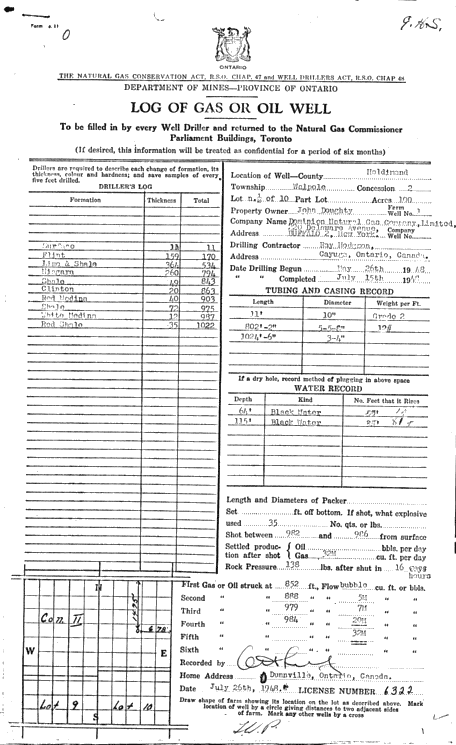 Form 6.11
0
J.H.S.
ONTARIO
THE NATURAL GAS CONSERVATION ACT, R.S.O. CHAP. 47 and WELL DRILLERS ACT, R.S.O. CHAP 48
DEPARTMENT OF MINES—PROVINCE OF ONTARIO
LOG OF GAS OR OIL WELL
To be filled in by every Well Driller and returned to the Natural Gas Commissioner
Parliament Buildings, Toronto
(If desired, this information will be treated as confidential for a period of six months)
Drillers are required to describe each change of formation, its
thickness, colour and hardness; and save samples of every
five feet drilled.
DRILLER'S LOG
Formation Thickness Total
Surface 11 11
Flint 159 170
Lime & Shale 364 534
Niagara 260 794
Shale 49 843
Clinton 20 863
Red Medina 40 903
Shale 72 975
White Medina 12 987
Red Shale 35 1022
Location of Well—County Haldimand
Township Walpole Concession 2
Lot n.½ of 10 Part Lot Acres 100
Property Owner John Doughty Farm Well No.
Company Name Dominion Natural Gas Company, Limited,
Address Delaware Avenue, Buffalo 2, New York. Company Well No.
Drilling Contractor Ray Hodgson,
Address Cayuga, Ontario, Canada.
Date Drilling Begun May 26th 1948.
" " Completed July 15th 194
TUBING AND CASING RECORD
Length Diameter Weight per Ft.
11' 10" Grade 2
802'-2" 5-5-8" 12#
1024'-6" 3-4"
If a dry hole, record method of plugging in above space
WATER RECORD
Depth Kind No. Feet that it Rises
64' Black Water
115' Black Water
Length and Diameters of Packer
Set ft. off bottom. If shot, what explosive
used 35 No. qts. or lbs.
Shot between 982 and 986 from surface
Settled production after shot { Oil bbls. per day
Gas 32M cu. ft. per day
Rock Pressure 138 lbs. after shut in 16 hours
First Gas or Oil struck at 852 ft., Flow bubble cu. ft. or bbls.
Second " " 888 " " 5M " "
Third " " 979 " " 7M " "
Fourth " " 984 " " 20M " "
Fifth " " " " 32M " "
Sixth " " " " " "
Recorded by
Home Address Dunnville, Ontario, Canada.
Date July 26th, 1948. LICENSE NUMBER 6322
Draw shape of farm showing its location on the lot as described above. Mark
location of well by a circle giving distances to two adjacent sides
of farm. Mark any other wells by a cross
N
Con II
678'
W E
Lot 9 Lot 10
S